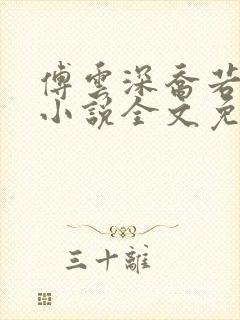 傅雲深喬若
小說全文免
三十離